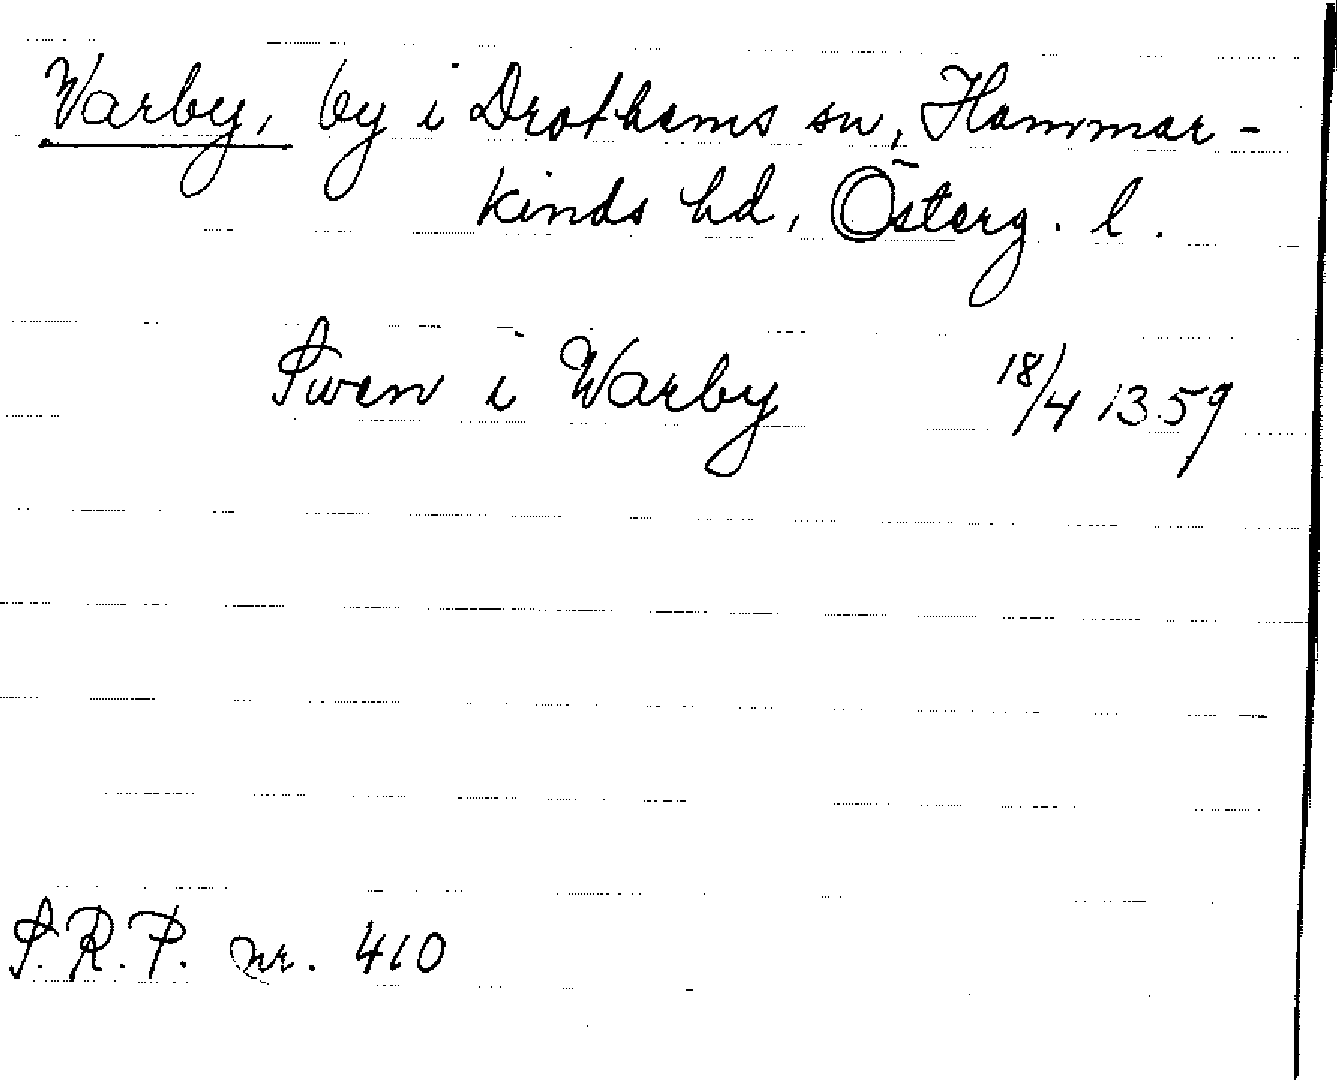 Warby, by i Drothems sn, Hammar-
kinds hd, Österg. l.
Swen i Warby 18/4 1359
S.R.P. nr. 410